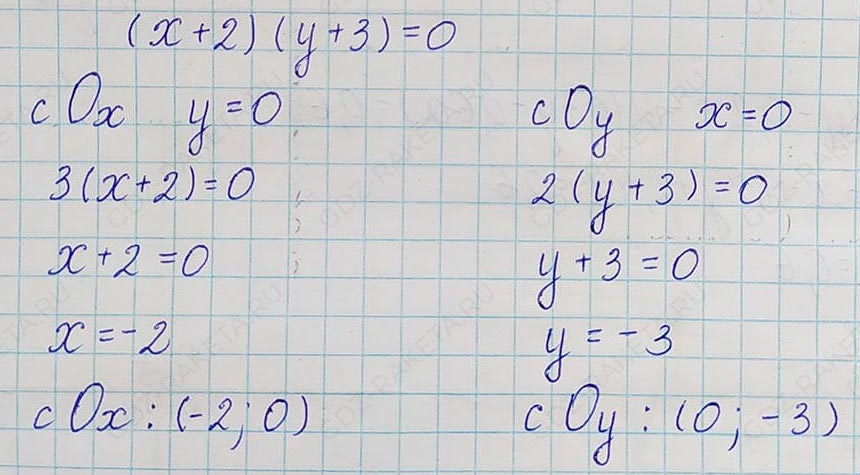 (x+2)(y+3)=0
с Ox y=0
3(x+2)=0
x+2=0
x=-2
с Ox: (-2; 0)
с Oy x=0
2(y+3)=0
y+3=0
y=-3
с Oy: (0; -3)
GDZ-RAKETA.RU